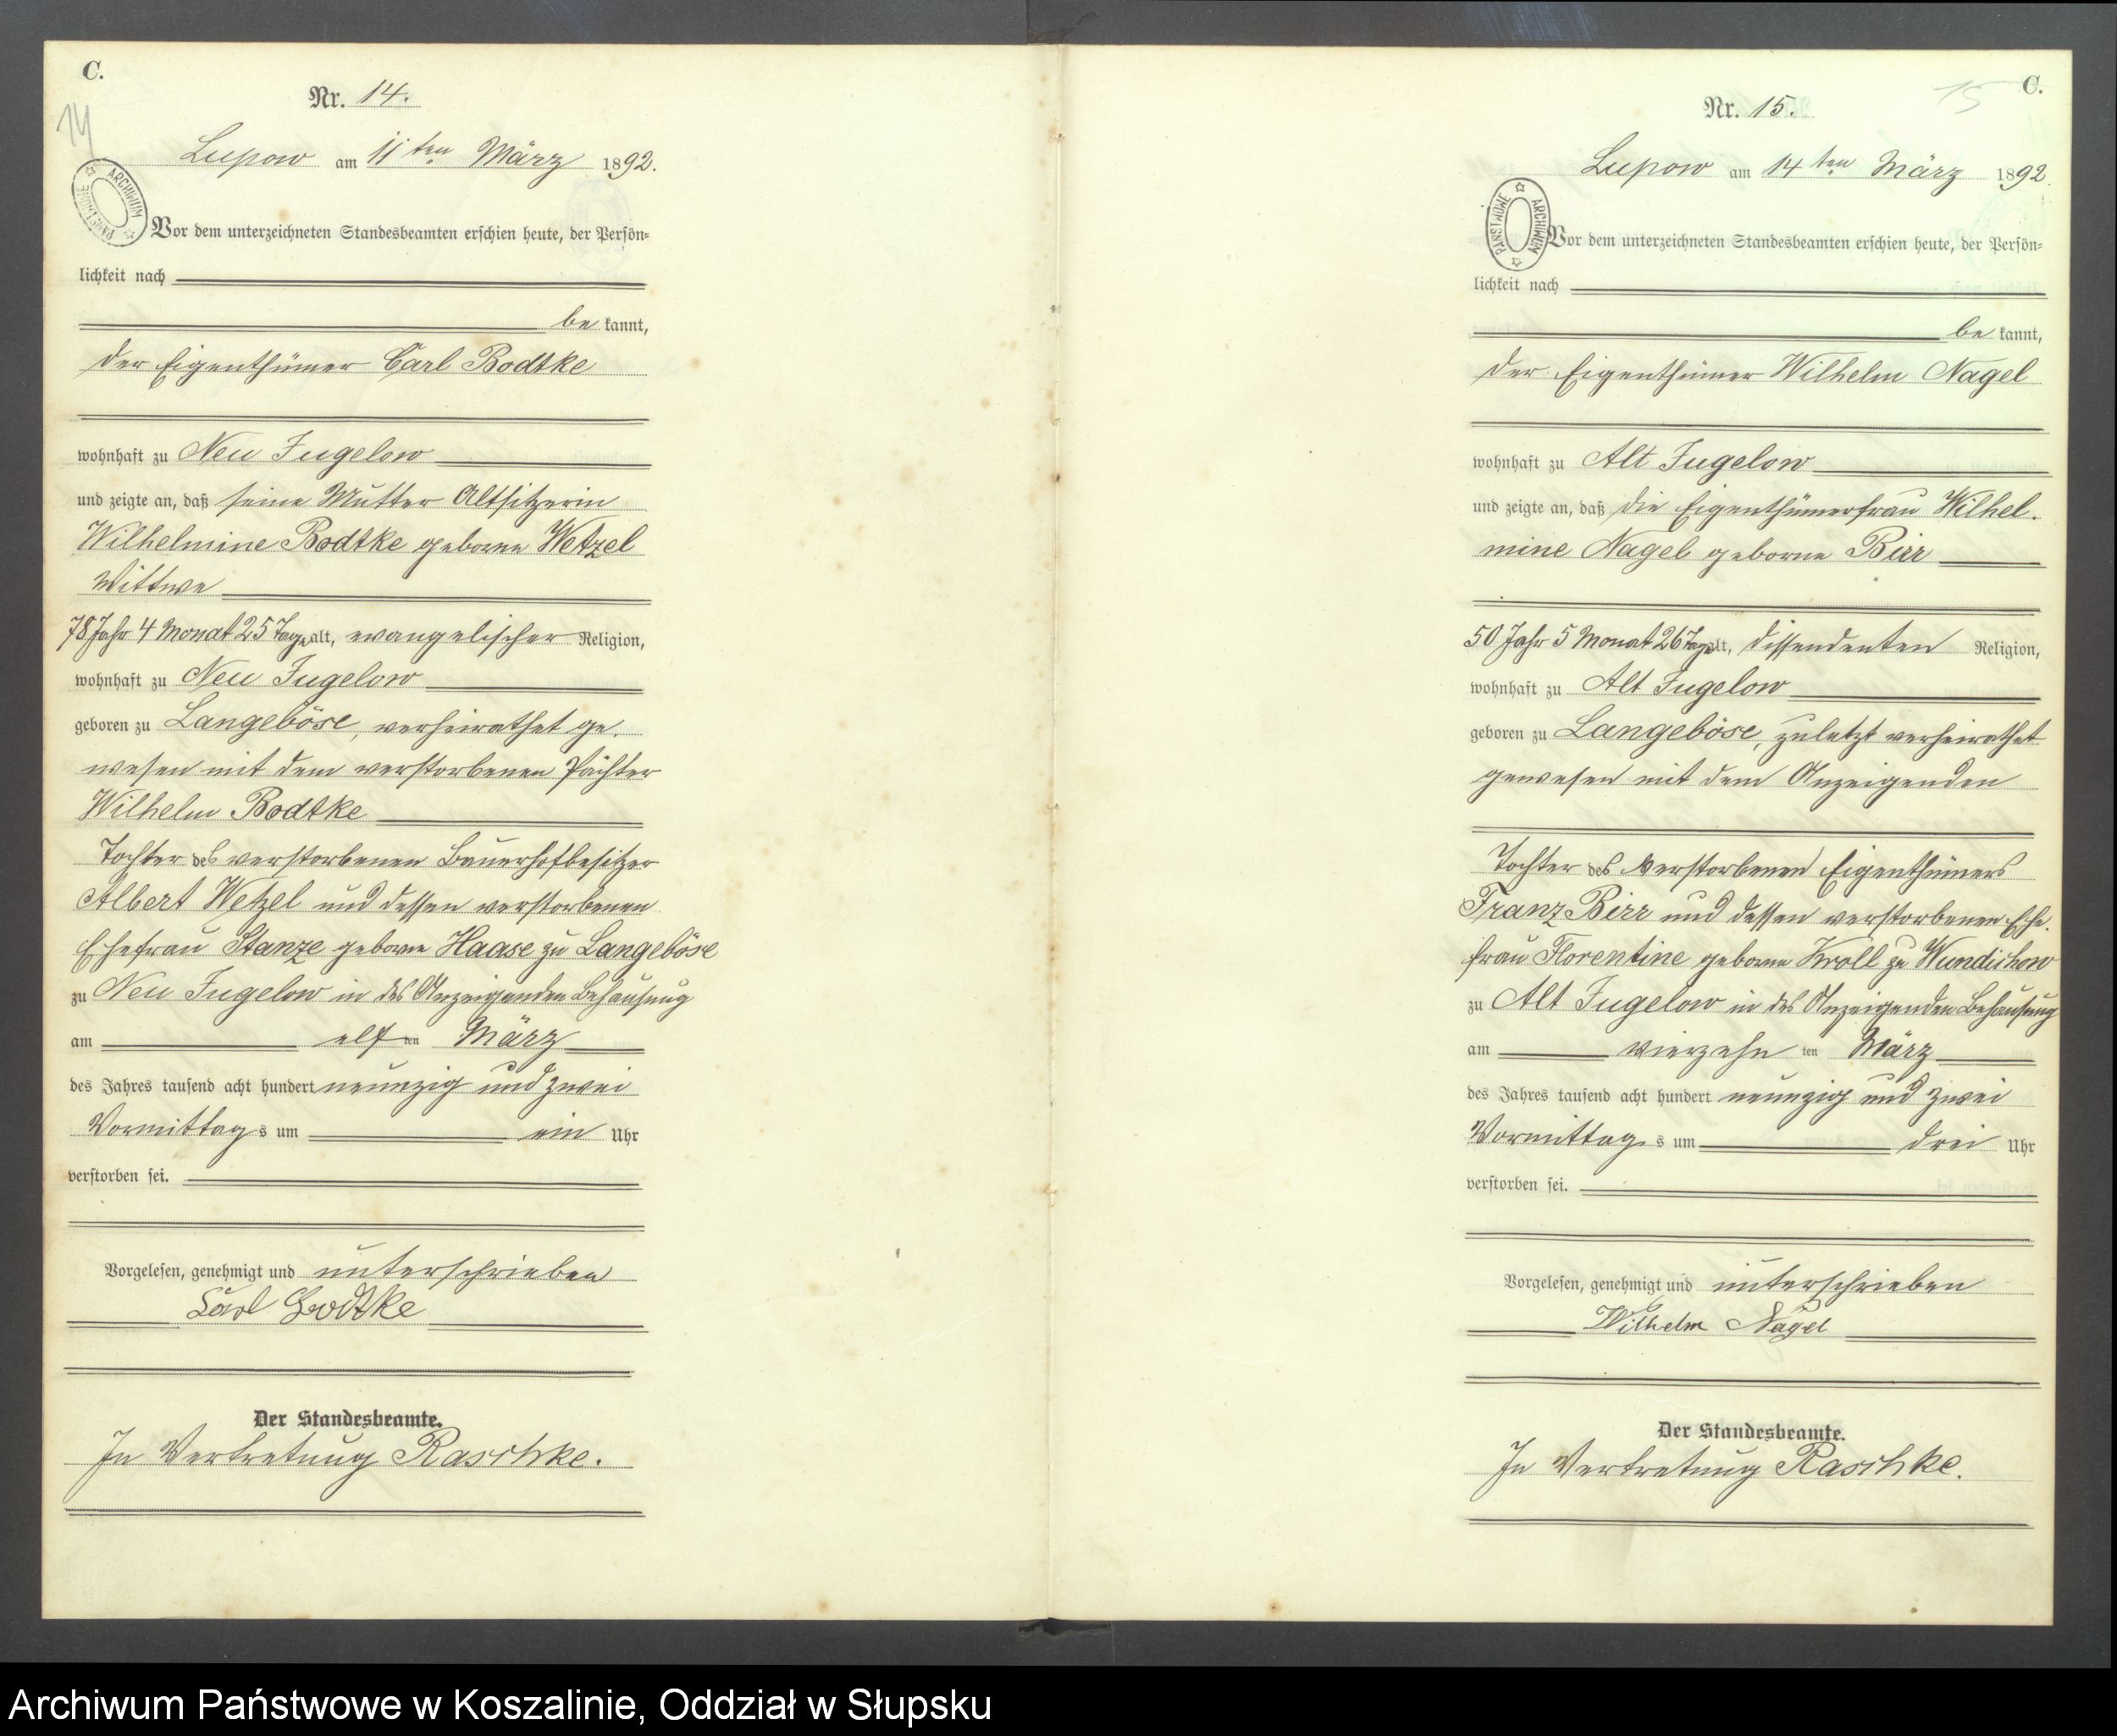 C.
Nr. 14.
14
Lupow am 11ten März 1892.
ARCHIWUM PAŃSTWOWE
Vor dem unterzeichneten Standesbeamten erschien heute, der Persön=
lichkeit nach
be kannt,
der Eigenthümer Carl Bodtke
wohnhaft zu Neu Jugelow
und zeigte an, daß seine Mutter Altsitzerin
Wilhelmine Bodtke geborne Wetzel
Wittwe
78 Jahr 4 Monat 25 Tage alt, evangelischer Religion,
wohnhaft zu Neu Jugelow
geboren zu Langeböse, verheirathet ge-
wesen mit dem verstorbenen Pächter
Wilhelm Bodtke
Tochter des verstorbenen Bauerhofbesitzer
Albert Wetzel und dessen verstorbenen
Ehefrau Stanze geborne Haase zu Langeböse
zu Neu Jugelow in des Anzeigenden Behausung
am elf ten März
des Jahres tausend acht hundert neunzig und zwei
Vormittag s um ein Uhr
verstorben sei.
Vorgelesen, genehmigt und unterschrieben
Carl Bodtke
Der Standesbeamte.
In Vertretung Raschke.
C.
15
Nr. 15.
Lupow am 14ten März 1892.
ARCHIWUM PAŃSTWOWE
Vor dem unterzeichneten Standesbeamten erschien heute, der Persön=
lichkeit nach
be kannt,
der Eigenthümer Wilhelm Nagel
wohnhaft zu Alt Jugelow
und zeigte an, daß die Eigenthümerfrau Wilhel-
mine Nagel geborne Birr
50 Jahr 5 Monat 26 Tage alt, dissendenten Religion,
wohnhaft zu Alt Jugelow
geboren zu Langeböse, zuletzt verheirathet
gewesen mit dem Anzeigenden
Tochter des verstorbenen Eigenthümers
Franz Birr und dessen verstorbenen Ehe-
frau Florentine geborne Kroll zu Wundichow
zu Alt Jugelow in des Anzeigenden Behausung
am vierzehn ten März
des Jahres tausend acht hundert neunzig und zwei
Vormittag s um drei Uhr
verstorben sei.
Vorgelesen, genehmigt und unterschrieben
Wilhelm Nagel
Der Standesbeamte.
In Vertretung Raschke.
Archiwum Państwowe w Koszalinie, Oddział w Słupsku